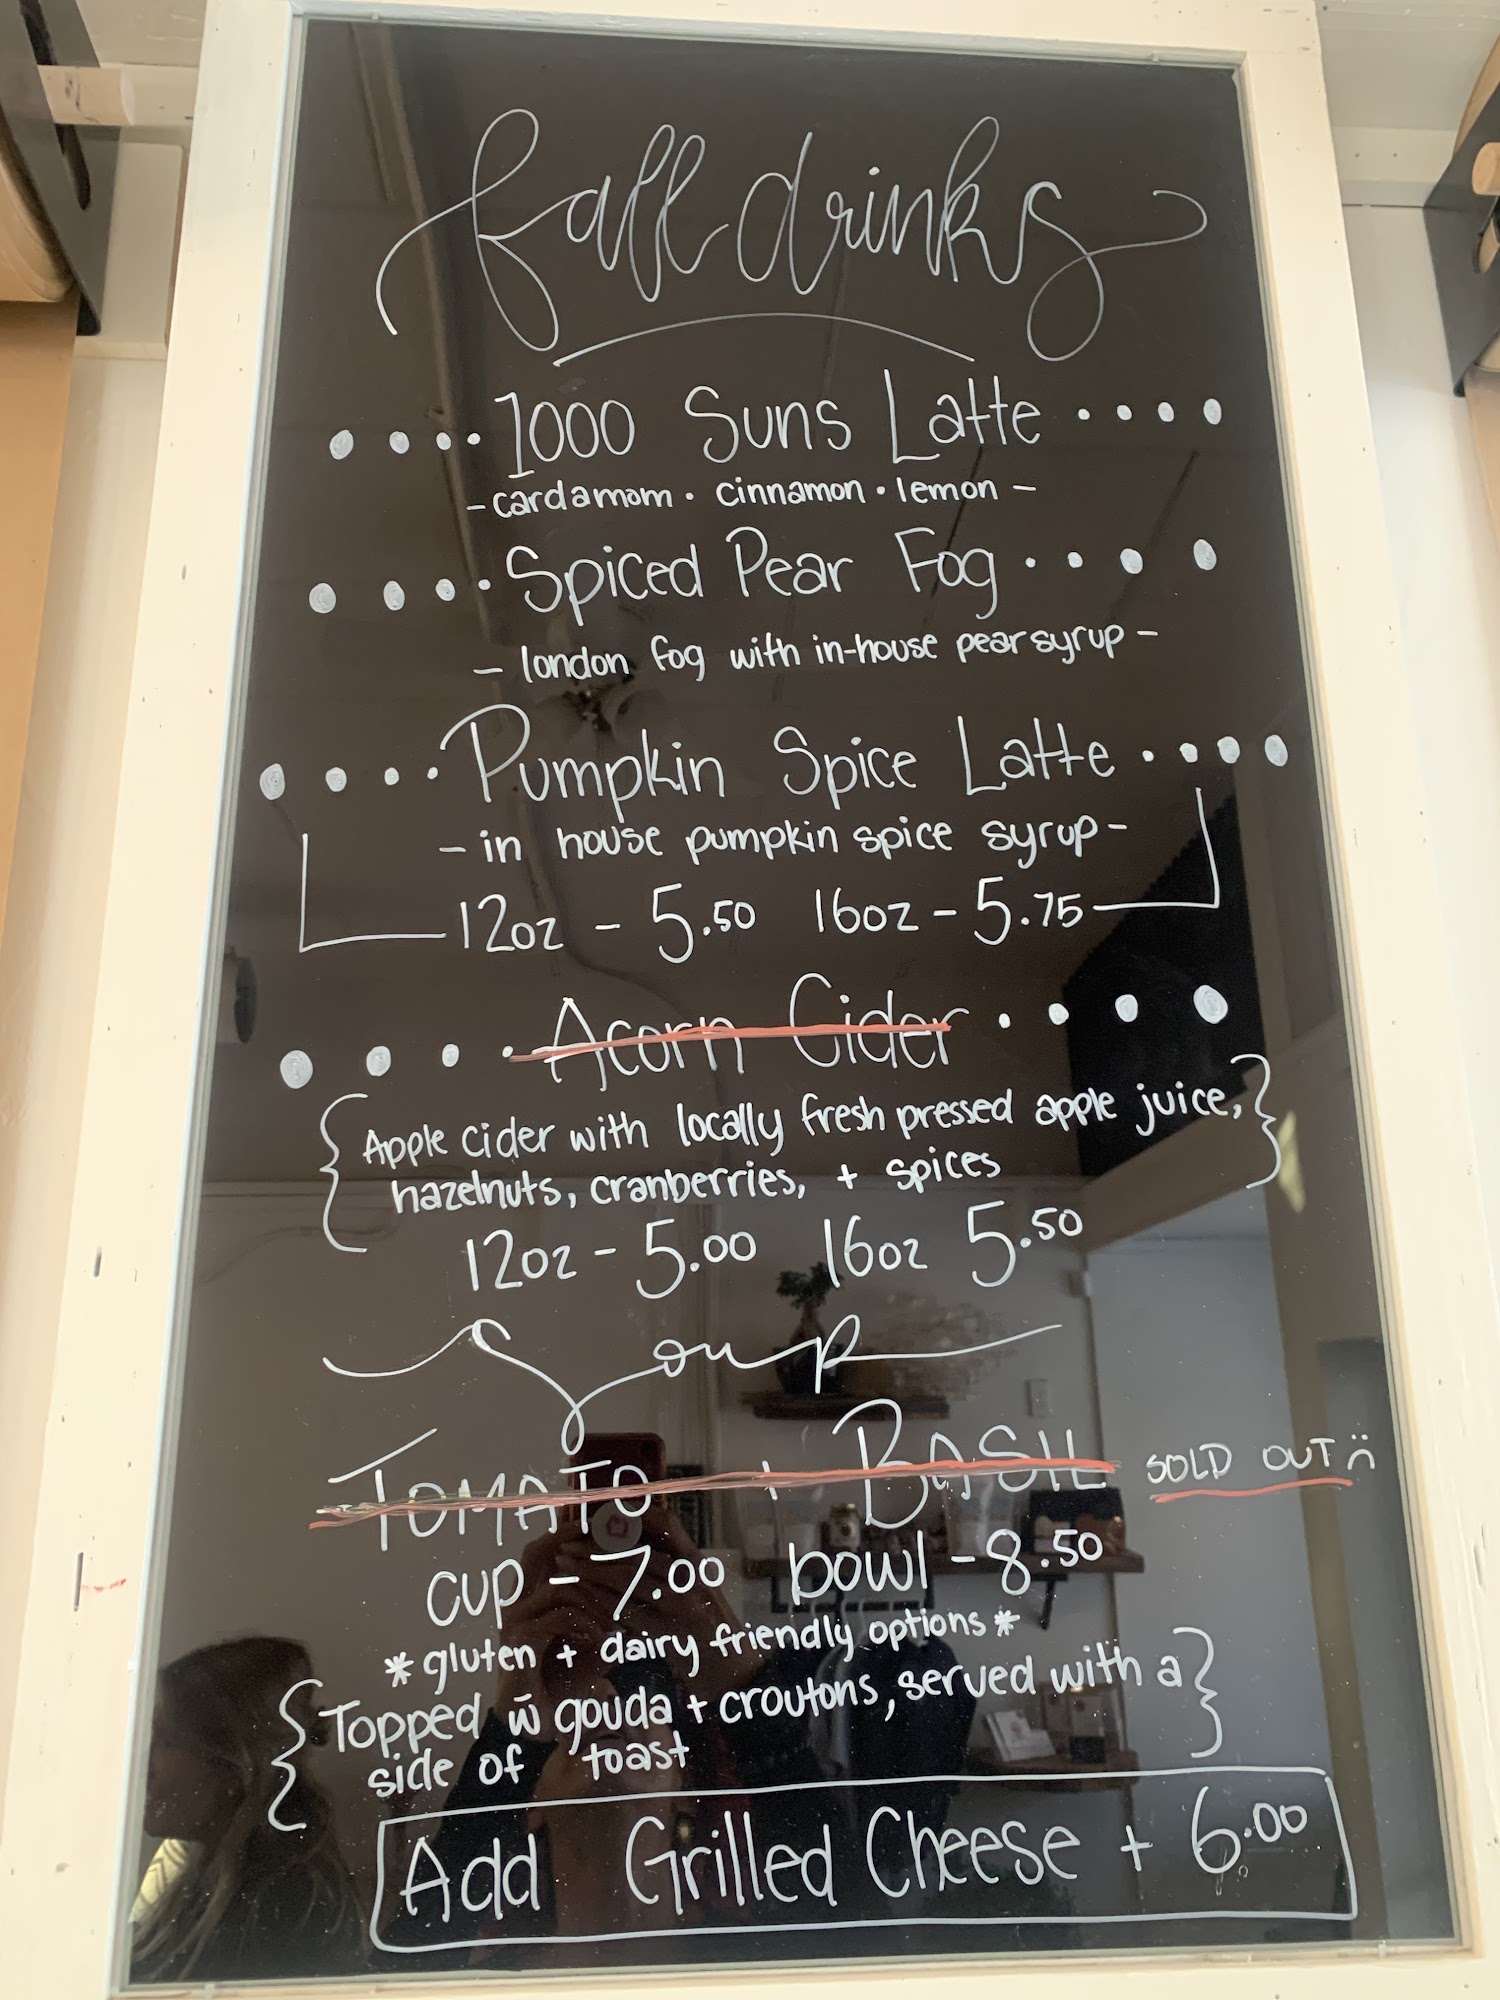 fall drinks
1000 Suns Latte
- cardamom · cinnamon · lemon -
Spiced Pear Fog
- london fog with in-house pear syrup -
Pumpkin Spice Latte
- in house pumpkin spice syrup -
12oz - 5.50 16oz - 5.75
Acorn Cider
{Apple cider with locally fresh pressed apple juice,}
hazelnuts, cranberries, + spices
12oz - 5.00 16oz 5.50
Soup
TOMATO + BASIL SOLD OUT :(
cup - 7.00 bowl - 8.50
*gluten + dairy friendly options*
{Topped w̄ gouda + croutons, served with a}
side of toast
Add Grilled Cheese + 6.00